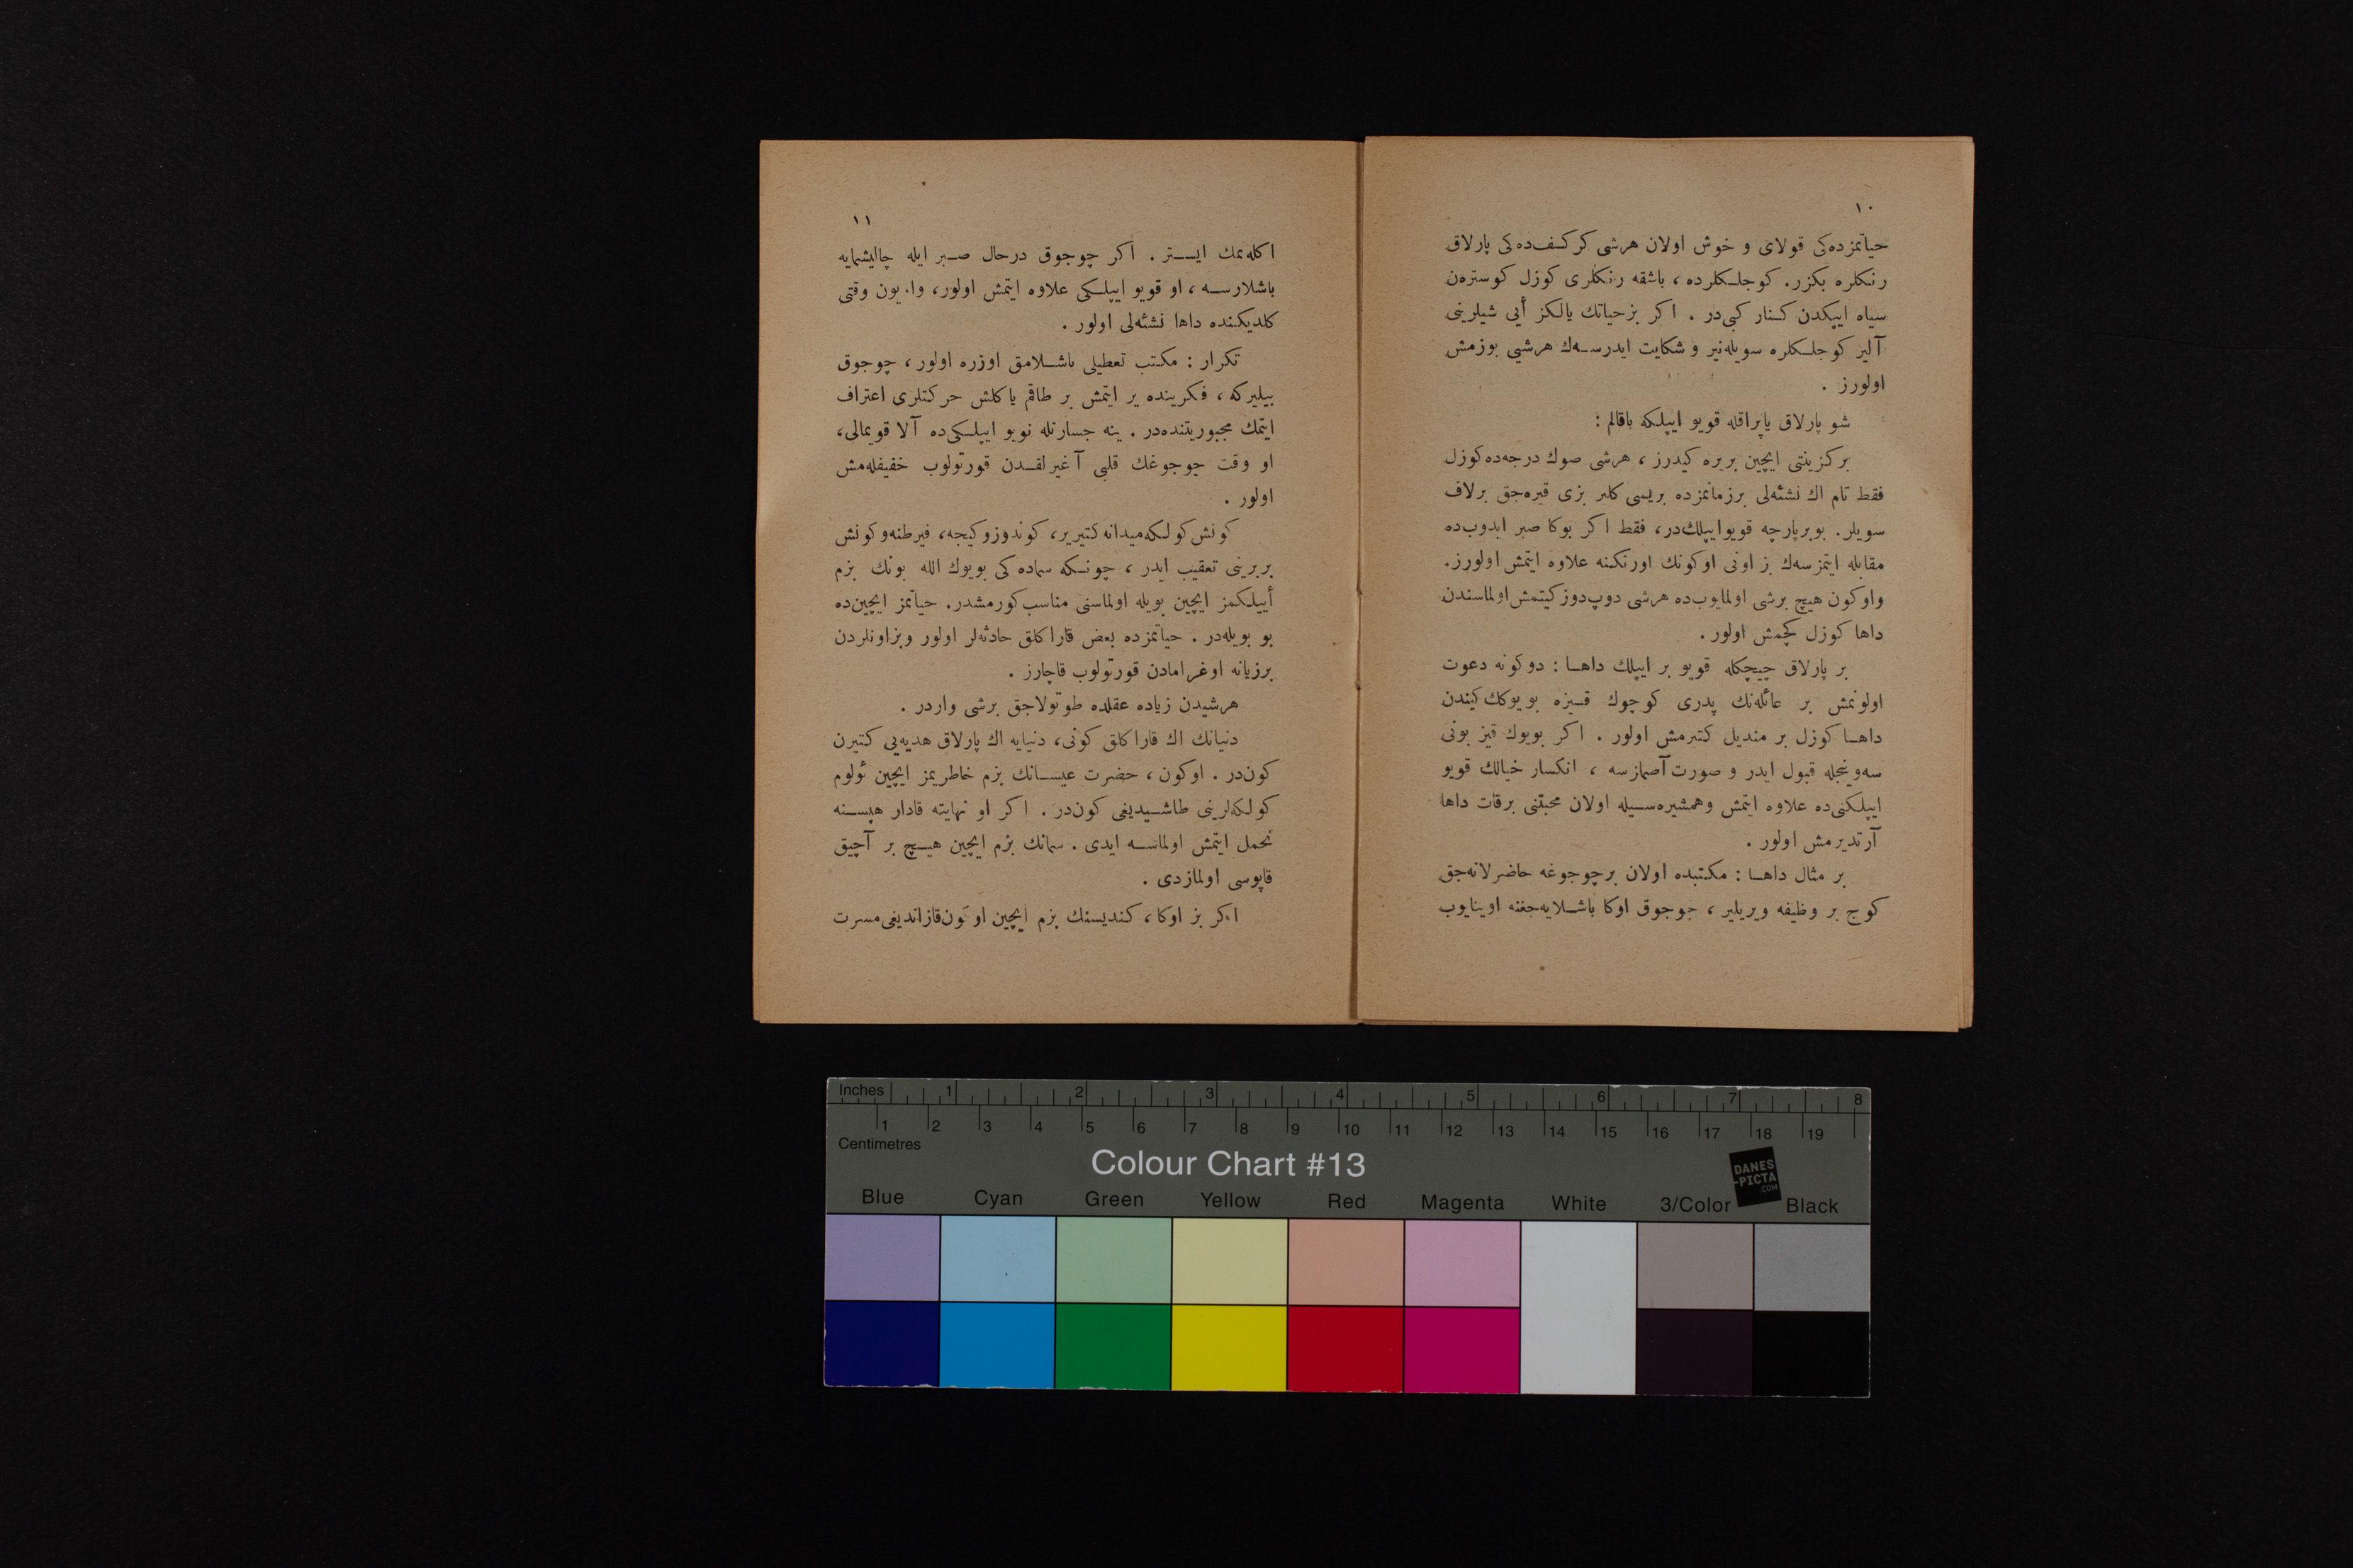 ١٠
حیاتمزده‌کی قولای و خوش اولان هرشی کرکـف‌ده‌کی پارلاق
رنکلره بکزر. کوجلـکلرده ، باشقه رنکلری کوزل کوسترەن
سیاه ایپکدن کـنار کبی‌در . اکر بزحیاتك یالکز أیی شیلرینی
آلیر کوجلـکلره سویله‌نیر و شکایت ایدرسـه‌ك هرشیی بوزمش
اولورز .
شو پارلاق یاپراقله قویو ایپلکه باقالم :
برکزینتی ایچین بریره کیدرز ، هرشی صوك درجه‌ده‌کوزل
فقط تام اك نشئه‌لی برزمانمزده بریسی کلیر بزی قیره‌جق برلاف
سویلر. بوبرپارچه قویوایپلك‌در، فقط اکر بوکا صبر ایدوب‌ده
مقابله ایتمزسه‌ك بز اونی اوکونك اورنکنه علاوه ایتمش اولورز.
واوکون هیچ برشی اولمایوب‌ده هرشی دوپ‌دوزکیتمش‌اولماسندن
داها کوزل کچمش اولور .
بر پارلاق چیچکله قویو بر ایپلك داهـا : دوکونه دعوت
اولونمش بر عائله‌نك پدری کوچوك قـیزه بویوکك‌کیندن
داهـا کوزل بر مندیل کتیرمش اولور . اکر بویوك قیز بونی
سه‌وینجله قبول ایدر و صورت آصمازسه ، انکسار خیالك قویو
ایپلکنی‌ده علاوه ایتمش وهمشیره‌سـیله اولان محبتنی برقات داها
آرتدیرمش اولور .
بر مثال داهـا : مکتبده اولان برچوجوغه حاضرلانه‌جق
کوج بر وظیفه ویریلیر ، جوجوق اوکا باشـلایه‌جغنه اوینایوب
١١
اکله‌نمك ایسـتر . اکر چوجوق درحال صـبر ایله چالیشمایه
باشلارسـه ، او قویو ایپلـکی علاوه ایتمش اولور، واویون وقتی
کلدیکـنده داها نشئه‌لی اولور .
تکرار : مکتب تعطیلی باشـلامق اوزره اولور ، چوجوق
بیلیرکه ، فکرینده یر ایتمش بر طاقم یاکلش حرکتلری اعتراف
ایتمك مجبوریتنده‌در . ینه جسارتله نویو ایپلـکی‌ده آلا قویمالی،
او وقت جوجوغك قلبی آغیرلقـدن قورتولوب خفیفله‌مش
اولور .
کونش‌کولـکه‌میدانه‌کتیریر، کوندوزوکیجه، فیرطنه‌وکونش
بربرینی تعقیب ایدر ، چونـکه سماده‌کی بویوك الله بونك بزم
أییلـکمز ایچین بویله اولماسنی مناسب‌کورمشدر. حیاتمز ایچین‌ده
بو بویله‌در . حیاتمزده بعض قاراکلق حادثه‌لر اولور وبزاونلردن
برزیانه اوغرامادن قورتولوب قاچارز .
هرشیدن زیاده عقلده طوتولاجق برشی واردر .
دنیانك اك قاراکلق کونی، دنیایه اك پارلاق هدیه‌یی کتیرن
کون‌در . اوکون ، حضرت عیسـانك بزم خاطریمز ایچین ئولوم
کولکه‌لرینی طاشـیدیغی کون‌در . اکر او نهایته قادار هپسـنه
تحمل ایتمش اولماسـه ایدی . سمانك بزم ایچین هیـچ بر آچیق
قاپوسی اولمازدی .
اکر بز اوکا ، کندیسنك بزم ایچین اوکون‌قازاندیغی‌مسرت
Inches 1 2 3 4 5 6 7 8
1 2 3 4 5 6 7 8 9 10 11 12 13 14 15 16 17 18 19
Centimetres
Colour Chart #13
DANES
-PICTA
.COM
Blue Cyan Green Yellow Red Magenta White 3/Color Black